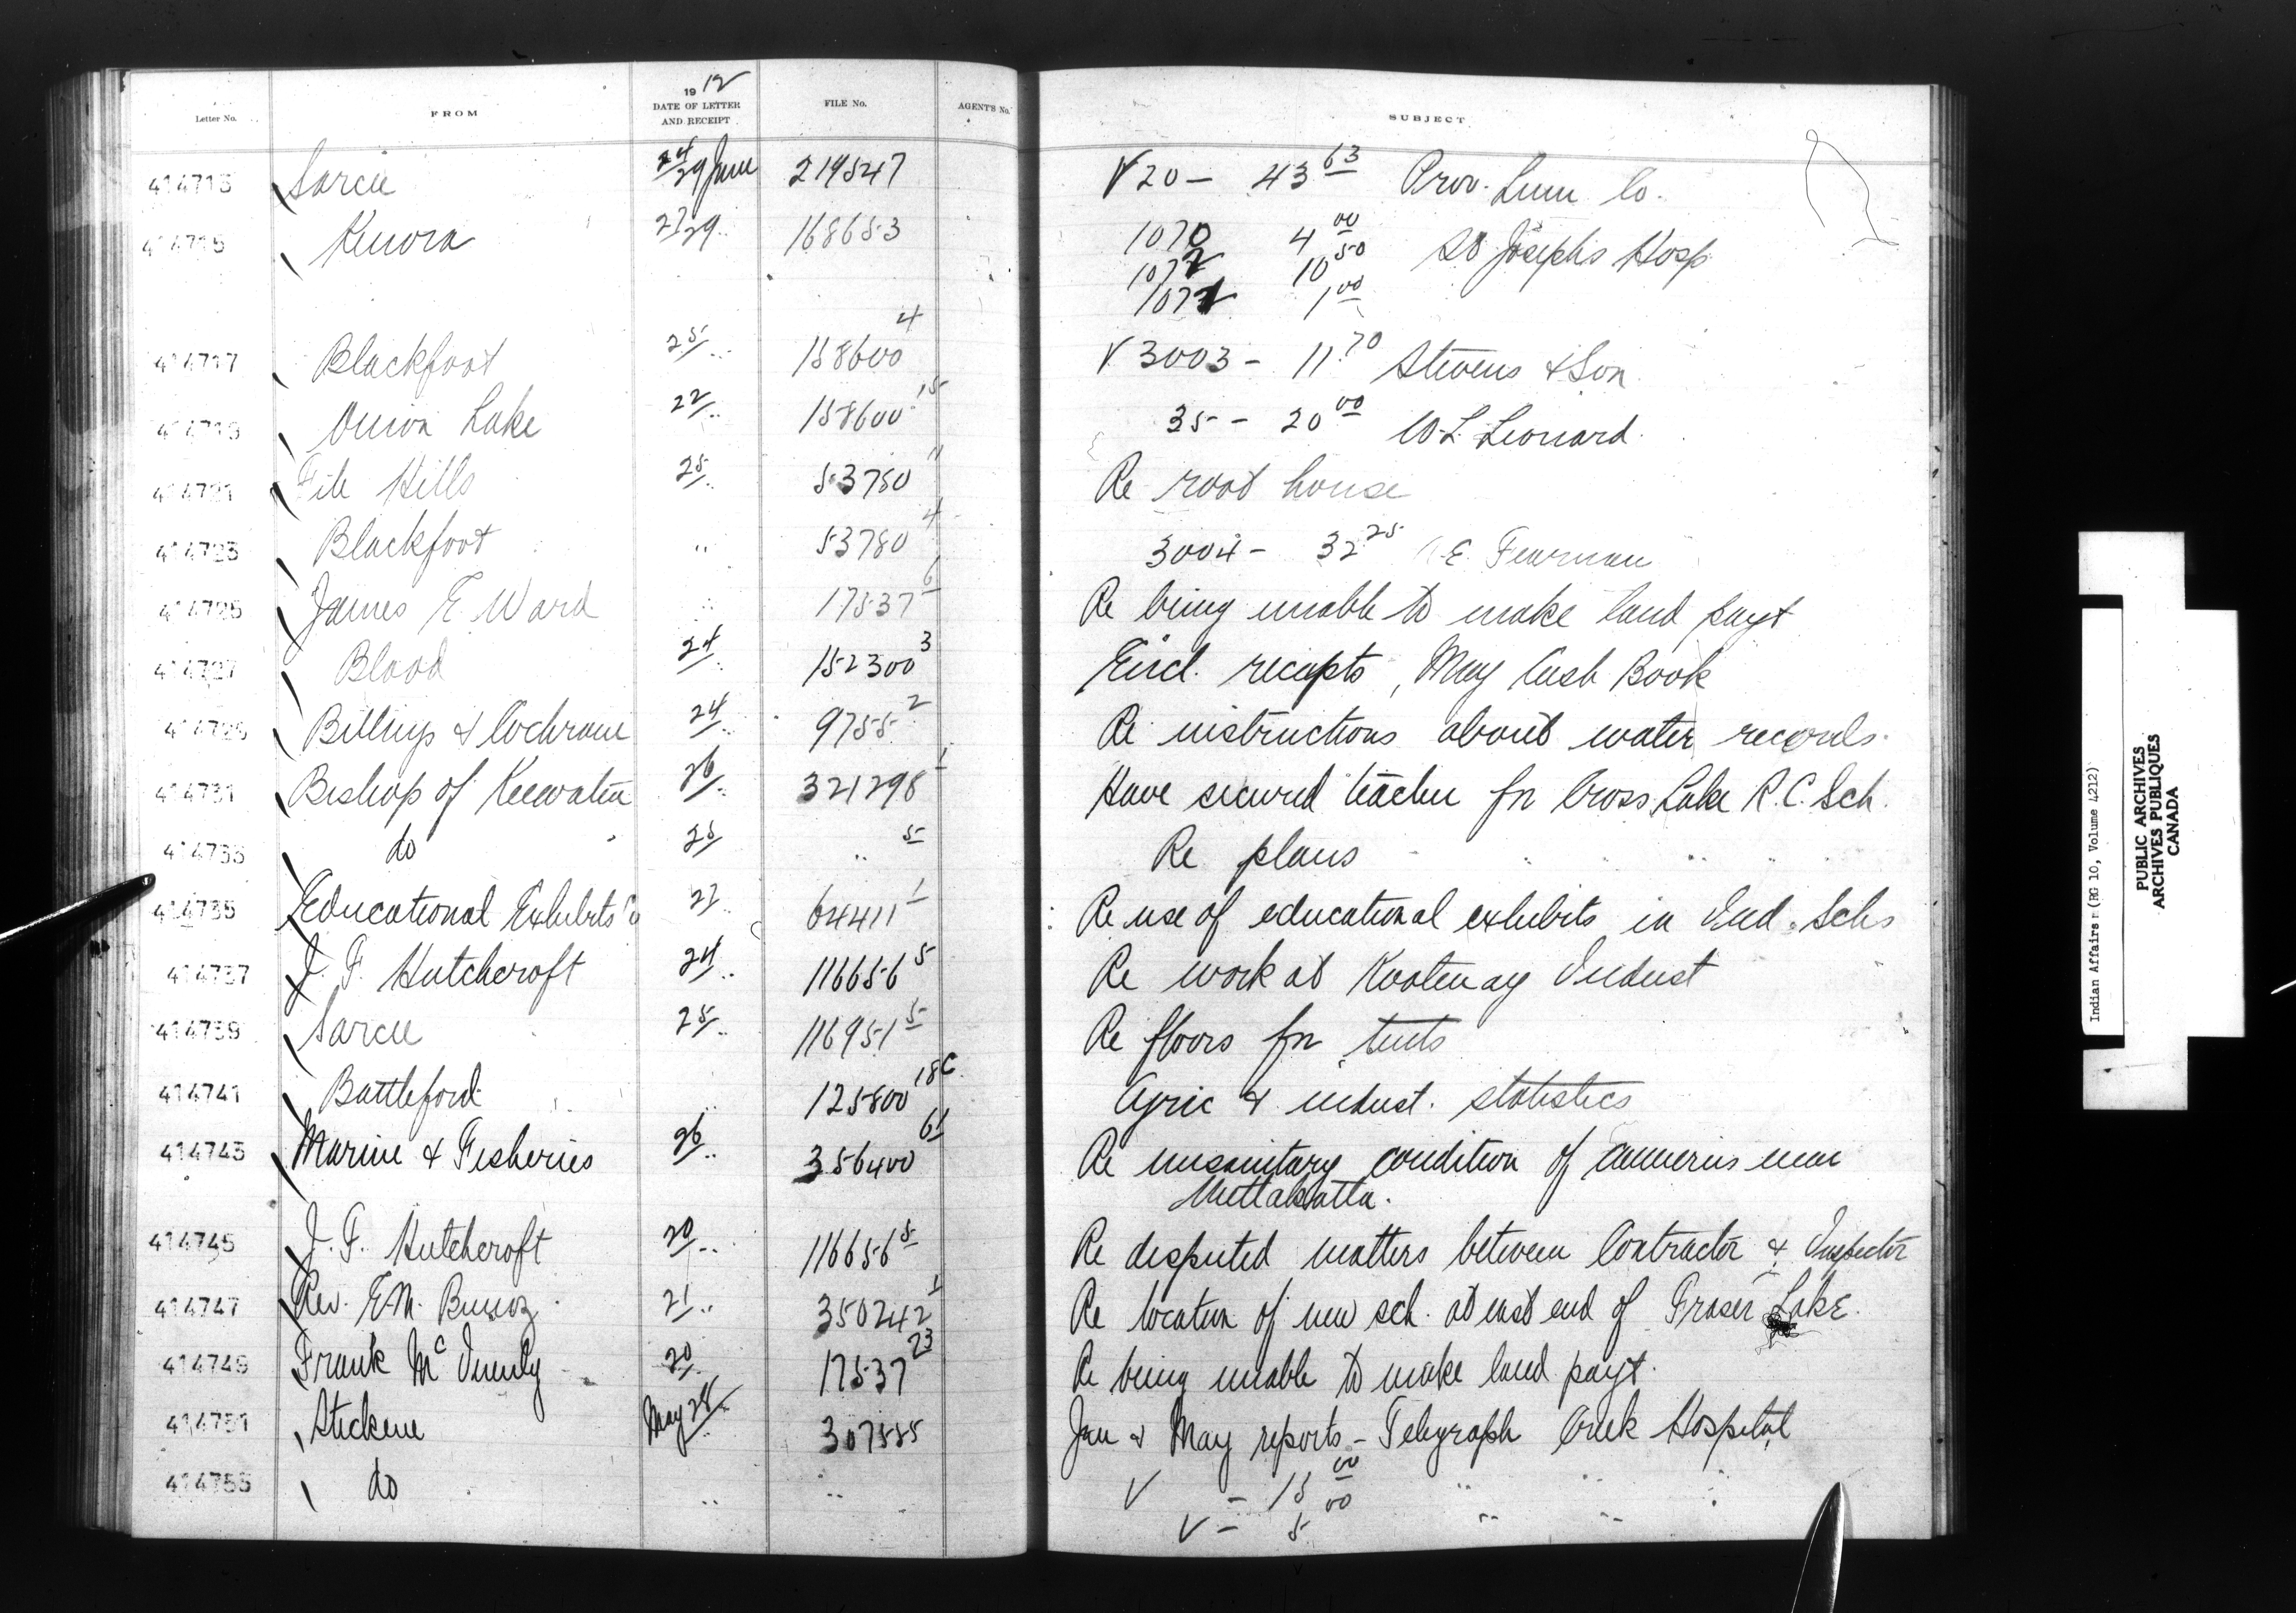 Letter No. FROM 1912 DATE OF LETTER AND RECEIPT FILE No. AGENT'S No. SUBJECT
414713 Sarcee 24/29 June 219547 V 20 - 43 63 Prov. Lum Co.
414715 Kenora 27/29 " 168653 1070 4 00
1072 10 50 St Josephs Hosp
1071 1 00
414717 Blackfoot 25/ " 158600 4 V 3003 - 11.70 Stevens & Son
414719 Onion Lake 22/ " 158600 15 35 - 20 00 W.L. Leonard.
414721 File Hills 25/ " 53780 11 Re root house
414723 Blackfoot " 53780 4 3004 - 32 25 E. Fearman
414725 James E. Ward " 17537 6 Re being unable to make land payt
414727 Blood 24/ " 152300 3 Encl. recepts, May Cash Book
414729 Billings & Cochrane 24/ " 9755 2 Re instructions about water records.
414731 Bishop of Keewatin 26/ " 321298 1 Have secured teacher for Cross Lake R.C. Sch.
414733 do 25/ " 5 Re plans " " " "
414735 Educational Exhibits Co 27/ " 64411 1 Re use of educational exhibits in Ind. Schs
414737 J. F. Hutchcroft 24/ " 116656 5 Re work at Kootenay Indust
414739 Sarcee 25/ " 116951 5 Re floors for tents
414741 Battleford " 125800 18C Agric & indust. statistics
414743 Marine & Fisheries 26/ " 356400 61 Re unsanitary condition of canneries near
Mettakatla.
414745 J. F. Hutchcroft 20/ " 116656 5 Re disputed matters between Contractor & Inspector
414747 Rev. E.M. Bunoz 21/ " 350242 1 Re location of new sch. at east end of Fraser Lake.
414749 Frank 20/ 17537 23 Re being unable to make land payt.
414751 Stickene May 28/ 307585 Jan & May reports - Telegraph Creek Hospital
414753 do " " V - 15 00 " " "
V - 5 00 " "
Indian Affairs: (RG 10, Volume 4212)
PUBLIC ARCHIVES
ARCHIVES PUBLIQUES
CANADA